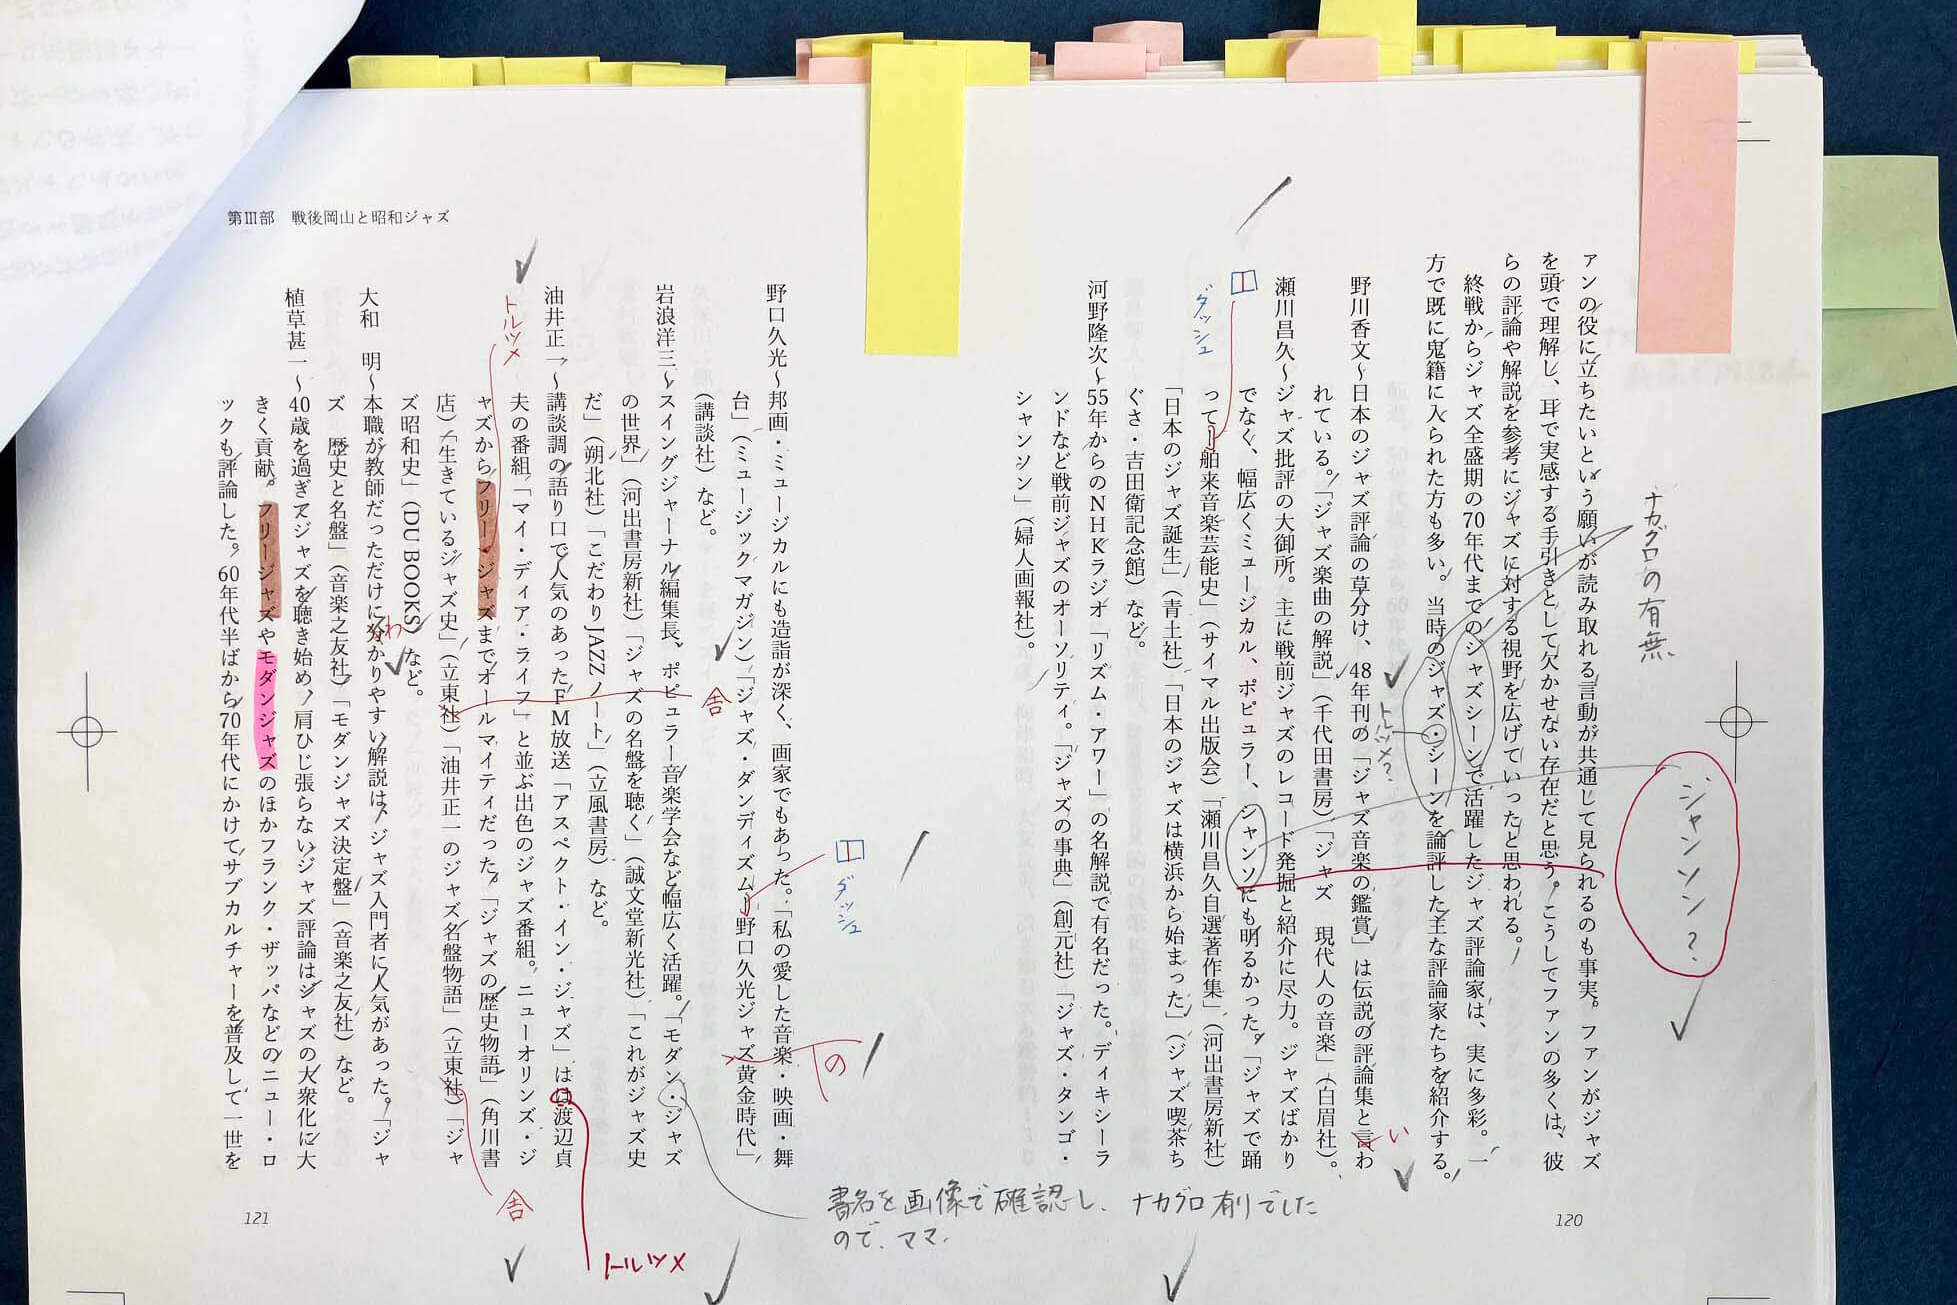 アンの役に立ちたいという願いが読み取れる言動が共通して見られるのも事実。ファンがジャズ
を頭で理解し、耳で実感する手引きとして欠かせない存在だと思う。こうしてファンの多くは、彼
らの評論や解説を参考にジャズに対する視野を広げていったと思われる。
終戦からジャズ全盛期の70年代までのジャズシーンで活躍したジャズ評論家は、実に多彩。一
方で既に鬼籍に入られた方も多い。当時のジャズ・シーンを論評した主な評論家たちを紹介する。
野川香文〜日本のジャズ評論の草分け、48年刊の「ジャズ音楽の鑑賞」は伝説の評論集と言わ
れている。「ジャズ楽曲の解説」（千代田書房）「ジャズ　現代人の音楽」（白眉社）。
瀬川昌久〜ジャズ批評の大御所。主に戦前ジャズのレコード発掘と紹介に尽力。ジャズばかり
でなく、幅広くミュージカル、ポピュラー、シャンソにも明るかった。「ジャズで踊
って 舶来音楽芸能史」（サイマル出版会）「瀬川昌久自選著作集」（河出書房新社）
「日本のジャズ誕生」（青土社）「日本のジャズは横浜から始まった」（ジャズ喫茶ち
ぐさ・吉田衛記念館）など。
河野隆次〜55年からのNHKラジオ「リズム・アワー」の名解説で有名だった。ディキシーラ
ンドなど戦前ジャズのオーソリティ。「ジャズの事典」（創元社）「ジャズ・タンゴ・
シャンソン」（婦人画報社）。
120
ナカグロの有無
トルツメ？
シャンソン？
い
ダッシュ
第Ⅲ部　戦後岡山と昭和ジャズ
野口久光〜邦画・ミュージカルにも造詣が深く、画家でもあった。「私の愛した音楽・映画・舞
台」（ミュージックマガジン）「ジャズ・ダンディズム 野口久光ジャズ黄金時代」
（講談社）など。
岩浪洋三〜スイングジャーナル編集長、ポピュラー音楽学会など幅広く活躍。「モダン・ジャズ
の世界」（河出書房新社）「ジャズの名盤を聴く」（誠文堂新光社）「これがジャズ史
だ」（朔北社）「こだわりJAZZノート」（立風書房）など。
油井正一〜講談調の語り口で人気のあったFM放送「アスペクト・イン・ジャズ」はは渡辺貞
夫の番組「マイ・ディア・ライフ」と並ぶ出色のジャズ番組。ニューオリンズ・ジ
ャズからフリー・ジャズまでオールマイティだった。「ジャズの歴史物語」（角川書
店）「生きているジャズ史」（立東社）「油井正一のジャズ名盤物語」（立東社）「ジャ
ズ昭和史」（DU BOOKS）など。
大和　明〜本職が教師だっただけに分かりやすい解説は、ジャズ入門者に人気があった。「ジャ
ズ　歴史と名盤」（音楽之友社）「モダンジャズ決定盤」（音楽之友社）など。
植草甚一〜40歳を過ぎてジャズを聴き始め、肩ひじ張らないジャズ評論はジャズの大衆化に大
きく貢献。フリージャズやモダンジャズのほかフランク・ザッパなどのニュー・ロ
ックも評論した。60年代半ばから70年代にかけてサブカルチャーを普及して一世を
121
ダッシュ
の
舎
トルツメ
わ
舎
トルツメ
書名を画像で確認し、ナカグロ有りでした
ので、ママ、